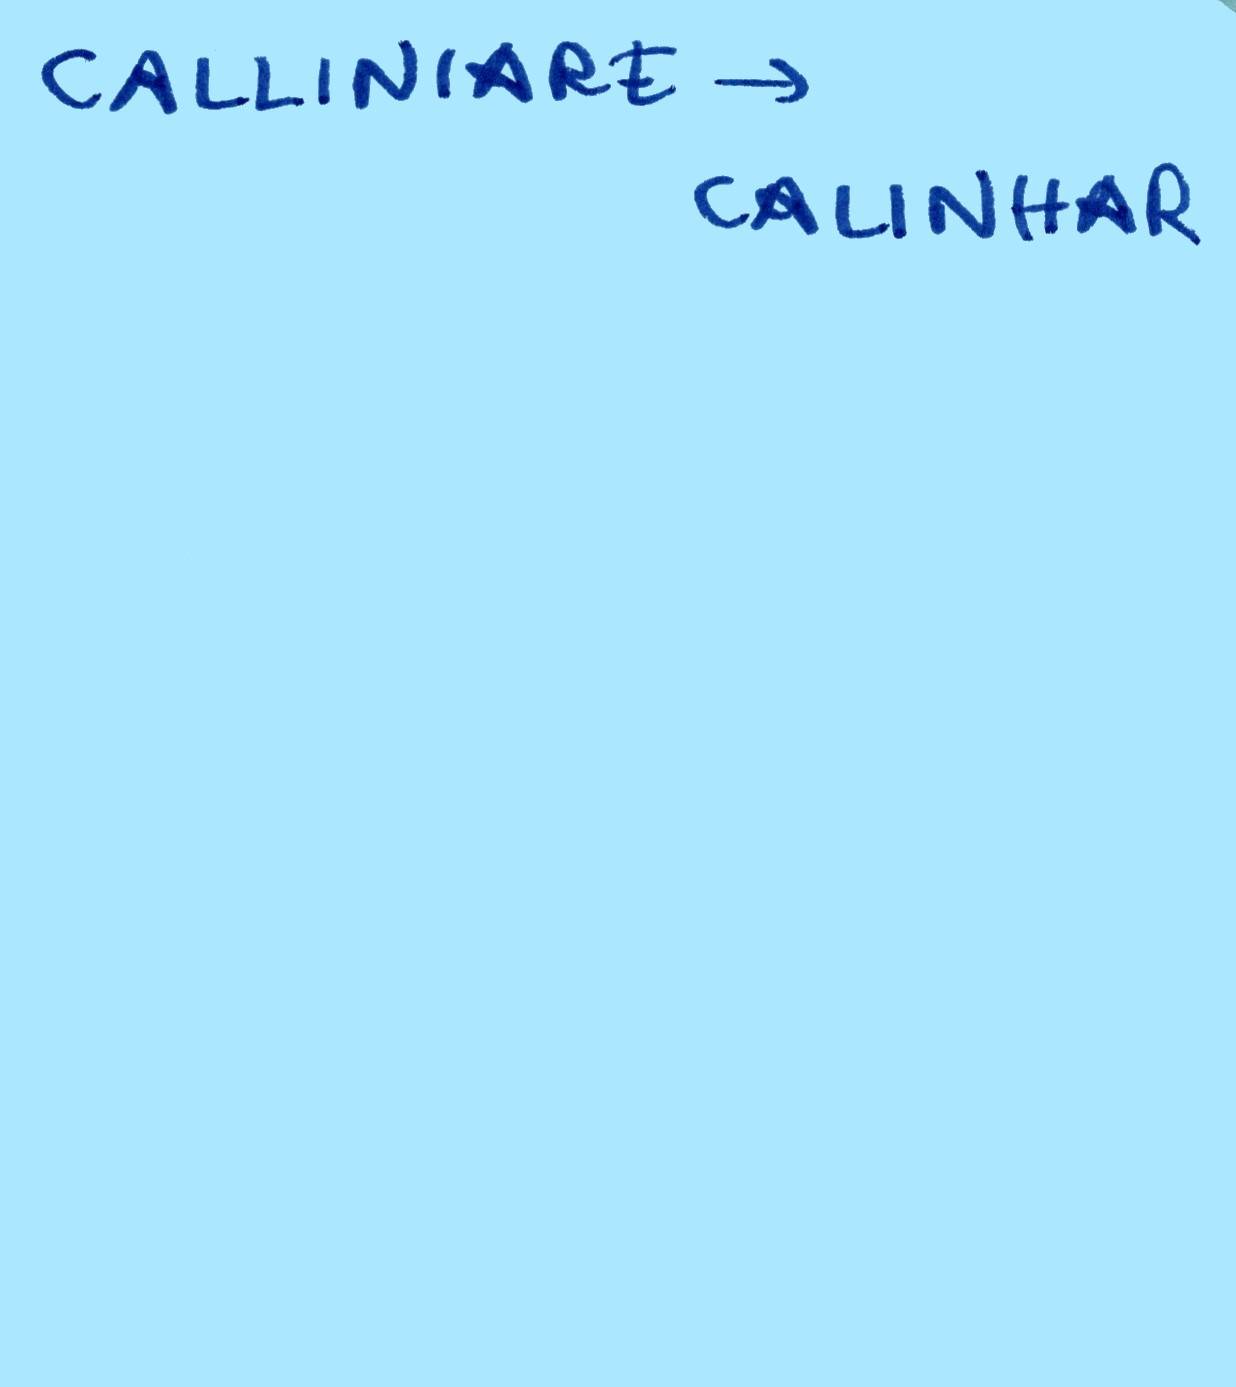 CALLINIARE →
CALINHAR